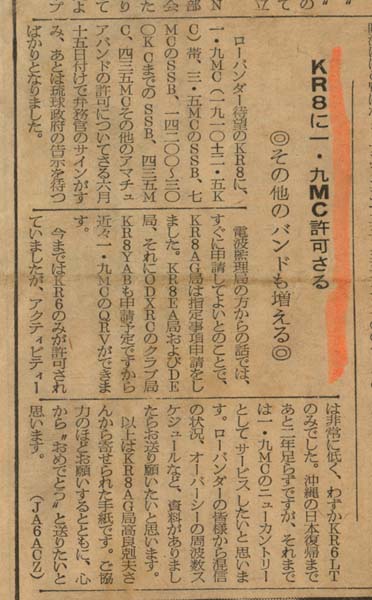 KR8に一・九MC許可さる
◎その他のバンドも増える◎
ローバンダー待望のKR8に、
一・九MC（一九一〇±二・五K
C）帯、三・五MCのSSB、七
MCのSSB、一四二〇〇～三〇
〇KCまでのSSB、四三五M
C、四三五MCその他のアマチュ
アバンドの許可についてさる六月
十五日付けで弁務官のサインがす
み、あとは琉球政府の告示を待つ
ばかりとなりました。
電波監理局の方からの話では、
すぐに申請してよいとのことで、
KR8AG局は指定事項申請をし
ました。KR8EA局およびDE
局、それにODXRCのクラブ局
KR8YABも申請予定ですから
近々一・九MCのQRVができま
す。
今まではKR6のみが許可され
ていましたが、アクティビティー
は非常に低く、わずかKR6LT
のみでした。沖縄の日本復帰まで
あと二年足らずですが、それまで
は一・九MCのニューカントリー
としてサービスしたいと思いま
す。ローバンダーの皆様から混信
の状況、オーバーシーの周波数ス
ケジュールなど、資料がありまし
たらお送り願いたいと思います。
以上はKR8AG局高良剋夫さ
んから寄せられた手紙です。ご協
力のほどお願いするとともに、心
から〝おめでとう〟と送りたいと
思います。（JA6ACZ）